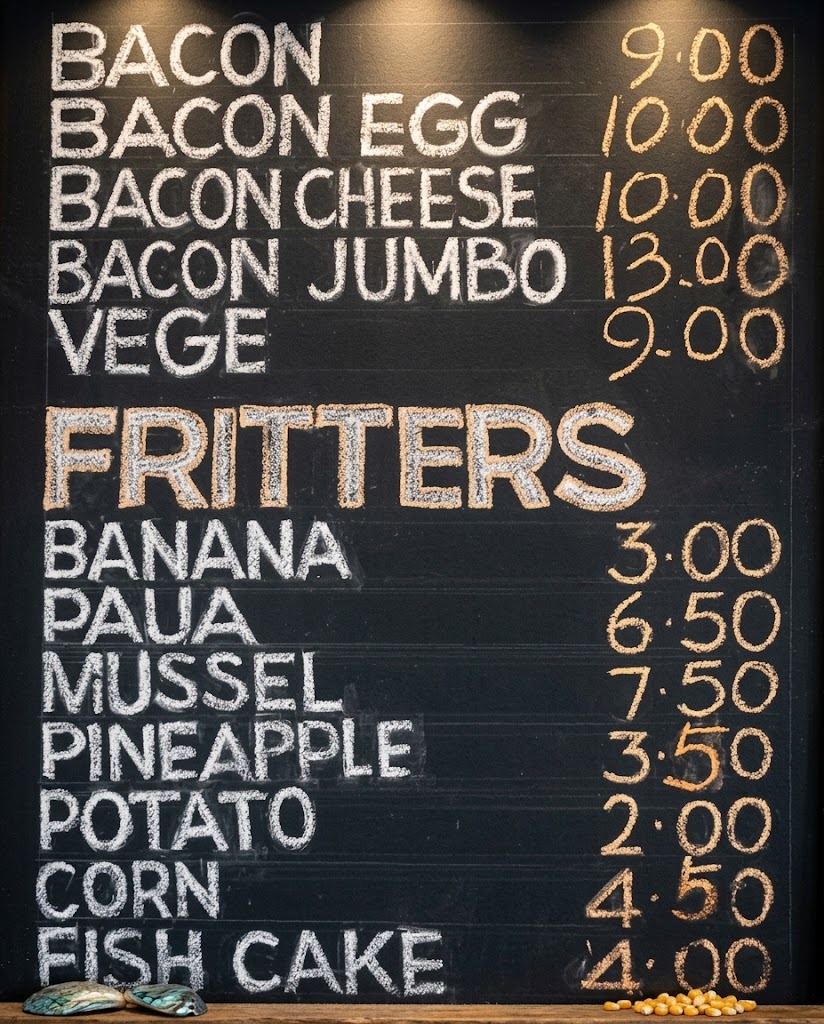 BACON 9.00
BACON EGG 10.00
BACON CHEESE 10.00
BACON JUMBO 13.00
VEGE 9.00
FRITTERS
BANANA 3.00
PAUA 6.50
MUSSEL 7.50
PINEAPPLE 3.50
POTATO 2.00
CORN 4.50
FISH CAKE 4.00